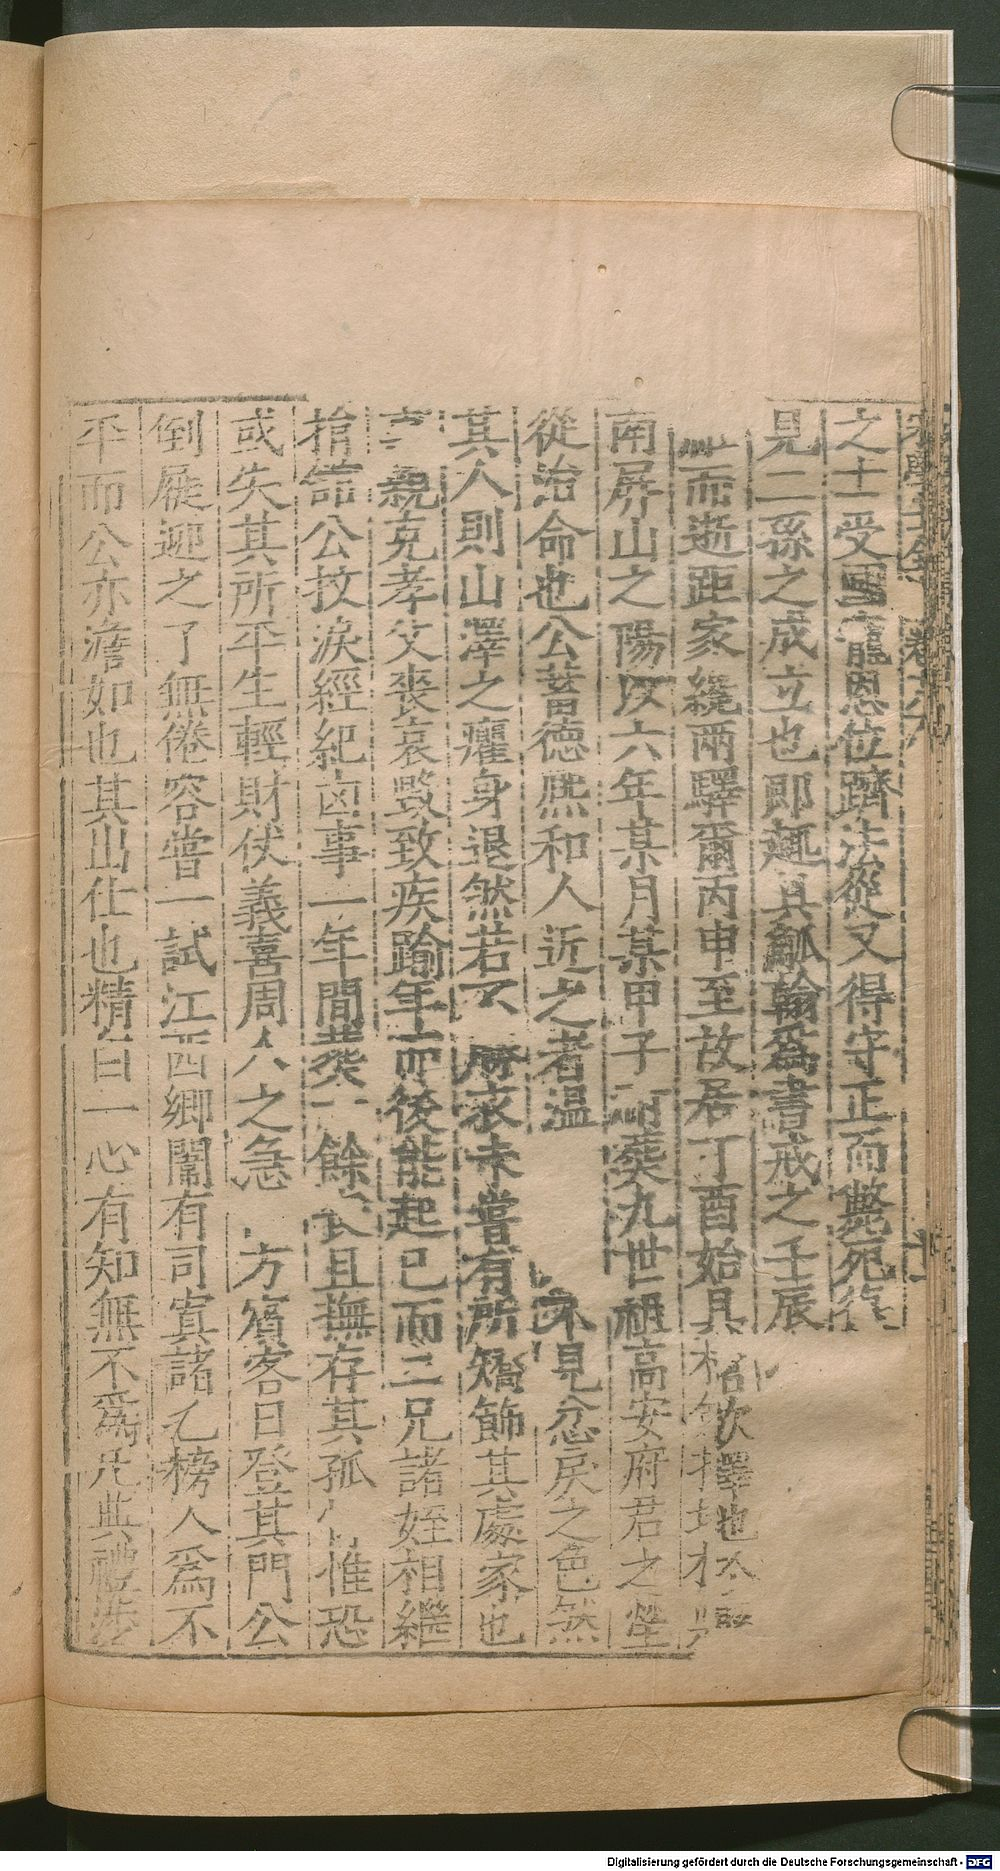 宋學士全 卷六
之士受國寵恩位躋法從又得守正而斃死復
見二孫之成立也即趣具觚翰爲書戒之壬辰
而逝距家纔兩驛爾丙申至故居丁酉始具棺斂擇地
南屏山之陽以六年某月某甲子祔葬九世祖高安府君之塋
從治命也公蓄德熙和人近之者溫 不見忿戾之色然
其人則山澤之癯身退然若不勝衣未嘗有所矯飾其處家也
事親克孝父喪哀毀致疾踰年而後能起已而三兄諸姪相繼
捐館公抆淚經紀凶事一年間葬 餘 且撫存其孤 惟恐
或失其所平生輕財伏義喜周人之急 方賓客日登其門公
倒屣迎之了無倦容嘗一試江西鄉闈有司寘諸乙榜人爲不
平而公亦澹如也其出仕也精白一心有知無不爲凡典禮
Digitalisierung gefördert durch die Deutsche Forschungsgemeinschaft - DFG